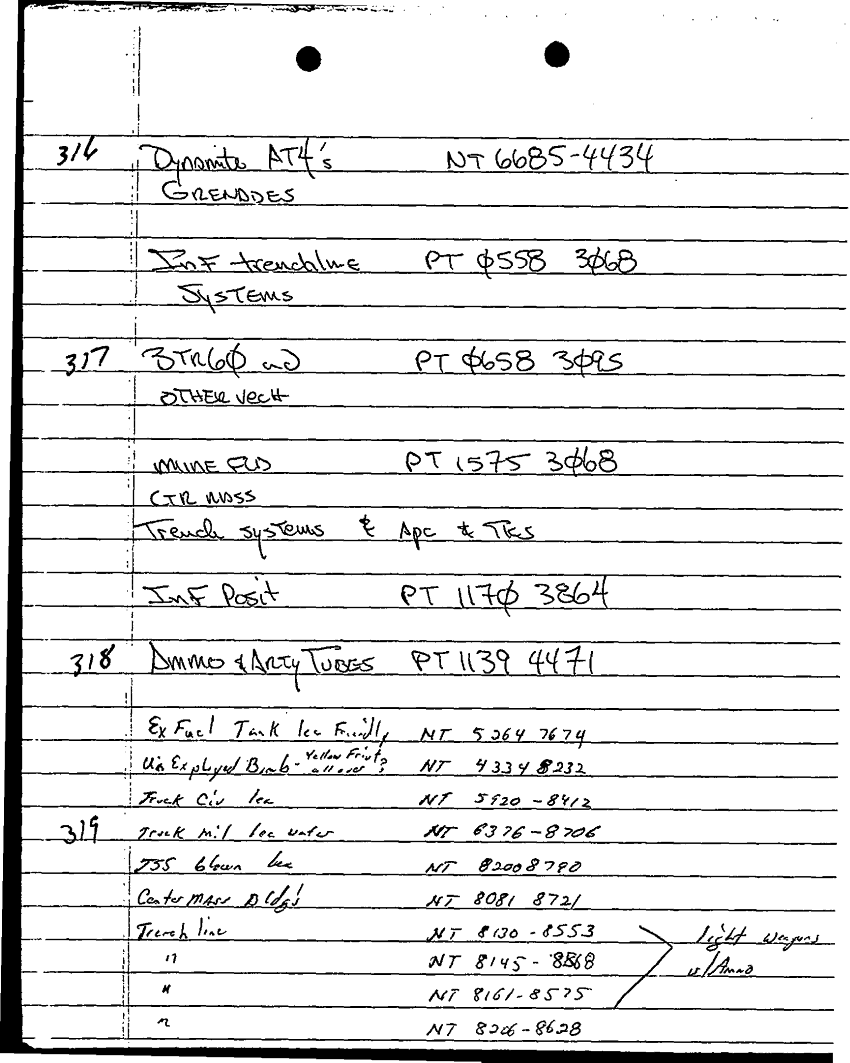 316 Dynamite AT4's NT 6685-4434
GRENADES
InF trenchline PT Ø558 3Ø68
SYSTEMS
317 BTR6Ø and PT Ø658 3Ø95
OTHER VECH
MINE FLD PT 1575 3Ø68
CTR MASS
Trench systems & Apc & TKs
InF Posit PT 117Ø 3864
318 AMMO & ARTY TUBES PT 1139 4471
Ex Fuel Tank loc Friendly NT 5264 7674
Un Exployed Bomb - Yellow Front? all over? NT 4334 8232
Truck Civ loc NT 5920-8412
319 Truck mil loc water NT 6376-8706
T55 blown loc NT 8200 8790
Center MASS Bldg's NT 8081 8721
Trench line NT 8130-8553 light weapons
" NT 8145-8568 w/Ammo
" NT 8161-8575
" NT 8206-8628